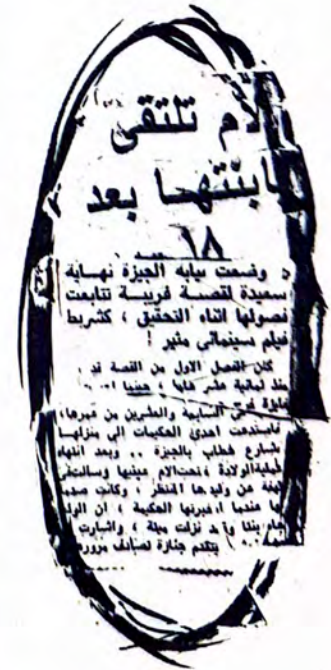 الأم تلتقى
بابنتها بعد
١٨
وضعت نيابه الجيزة نهاية
سعيدة لقصة غريبة تتابعت
فصولها اثناء التحقيق ، كشريط
فيلم سينمائى مثير !
كان الفصل الاول من القصة قد
منذ ثمانية عشر عاما ، حينما
فى السابعة والعشرين من عمرها،
فاستدعت احدى الحكيمات الى منزلها
بشارع خطاب بالجيزة .. وبعد انتهاء
عملية الولادة ، فتحت الام عينيها وسالت فى
لهفة عن وليدها المنتظر ، وكانت
عندما اخبرتها الحكيمة ، ان
نزلت ميتة ، واشارت
جنازة تصادف مرورها